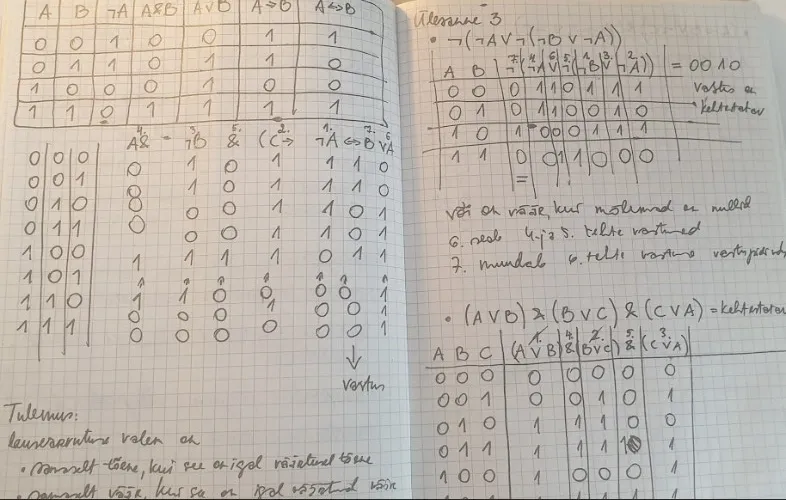 A B ¬A A&B A∨B A⇒B A⇔B
0 0 1 0 0 1 1
0 1 1 0 1 1 0
1 0 0 0 1 0 0
1 1 0 1 1 1 1
4. 3. 5. 2. 1. 7. 6.
A& ¬B & (C⇒ ¬A ⇔B ∨A
0 0 0 0 1 0 1 1 1 0
0 0 1 0 1 0 1 1 1 0
0 1 0 0 0 0 1 1 0 1
0 1 1 0 0 0 1 1 0 1
1 0 0 1 1 1 1 0 1 1
1 0 1
1 1 0 1 1 0 0 0 0 1
1 1 1 0 0 0 1 0 0 1
0 0 0 0 0 0 1
vastus
Tulemus:
lausearvutuse valem on
• samaselt tõene, kui see on igal väärtusel tõene
• samaselt väär, kui see on igal väärtusel väär
Ülesanne 3
• ¬(¬A∨¬(¬B∨¬A))
7. 4. 6. 5. 1. 3. 2.
A B ¬(¬A∨¬(¬B∨¬A)) = 0010
0 0 0 1 1 0 1 1 1 vastus on
0 1 0 1 1 0 0 1 0 kehtestatav
1 0 1 0 0 0 1 1 1
1 1 0 0 1 1 0 0 0
või on väär, kui mõlemad on nullid
6. seob 4. ja 5. tehte vastused
7. muudab 6. tehte vastuse vastupidiseks
• (A∨B) & (B∨C) & (C∨A) = kehtestatav
1. 4. 2. 5. 3.
A B C (A∨B) & (B∨C) & (C∨A)
0 0 0 0 0 0 0 0
0 0 1 0 0 1 0 1
0 1 0 1 1 1 0 0
0 1 1 1 1 1 1 1
1 0 0 1 0 0 0 1